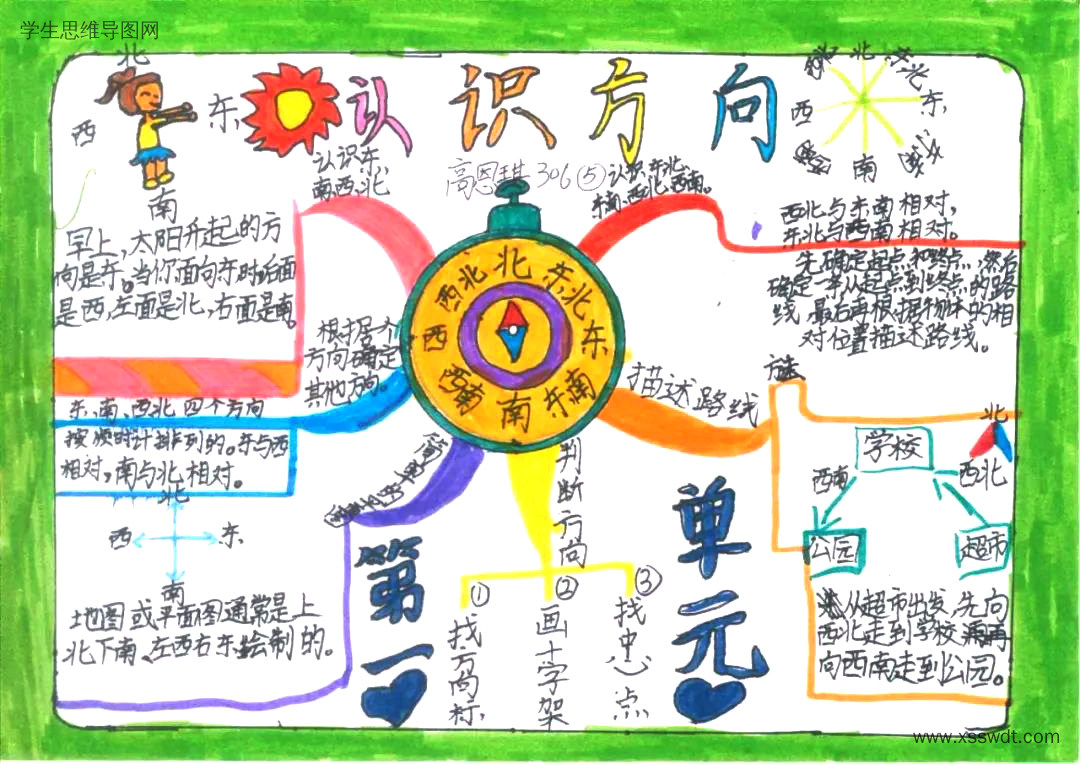 学生思维导图网
北
西
东
南
认识方向
高恩琪 306 ⑤
北
东
西
南
认识东、
南、西、北
早上,太阳升起的方
向是东。当你面向东时,后面
是西,左面是北,右面是南。
认识东北、
东南、西北、西南。
西北与东南相对,
东北与西南相对。
先确定起点和终点,然后
确定一条从起点到终点的路
线,最后再根据物体的相
对位置描述路线。
北
东北
东
东南
南
西南
西
西北
根据一个
方向确定
其他方向。
东、南、西、北四个方向
按顺时针排列的。东与西
相对,南与北相对。
描述路线
方法
北
学校
西南
西北
公园
超市
从超市出发,先向
西北走到学校,再
向西南走到公园。
北
西
东
南
地图或平面图通常是上
北下南、左西右东绘制的。
判断方向
①
找方向标
②
画十字架
③
找中心点
第一
单元
www.xsswdt.com